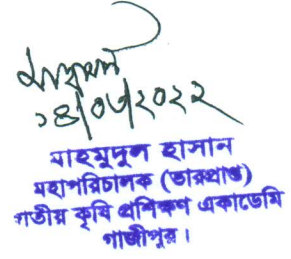 ১৪/০৩/২০২২
মাহমুদুল হাসান
মহাপরিচালক (ভারপ্রাপ্ত)
জাতীয় কৃষি প্রশিক্ষণ একাডেমি
গাজীপুর।